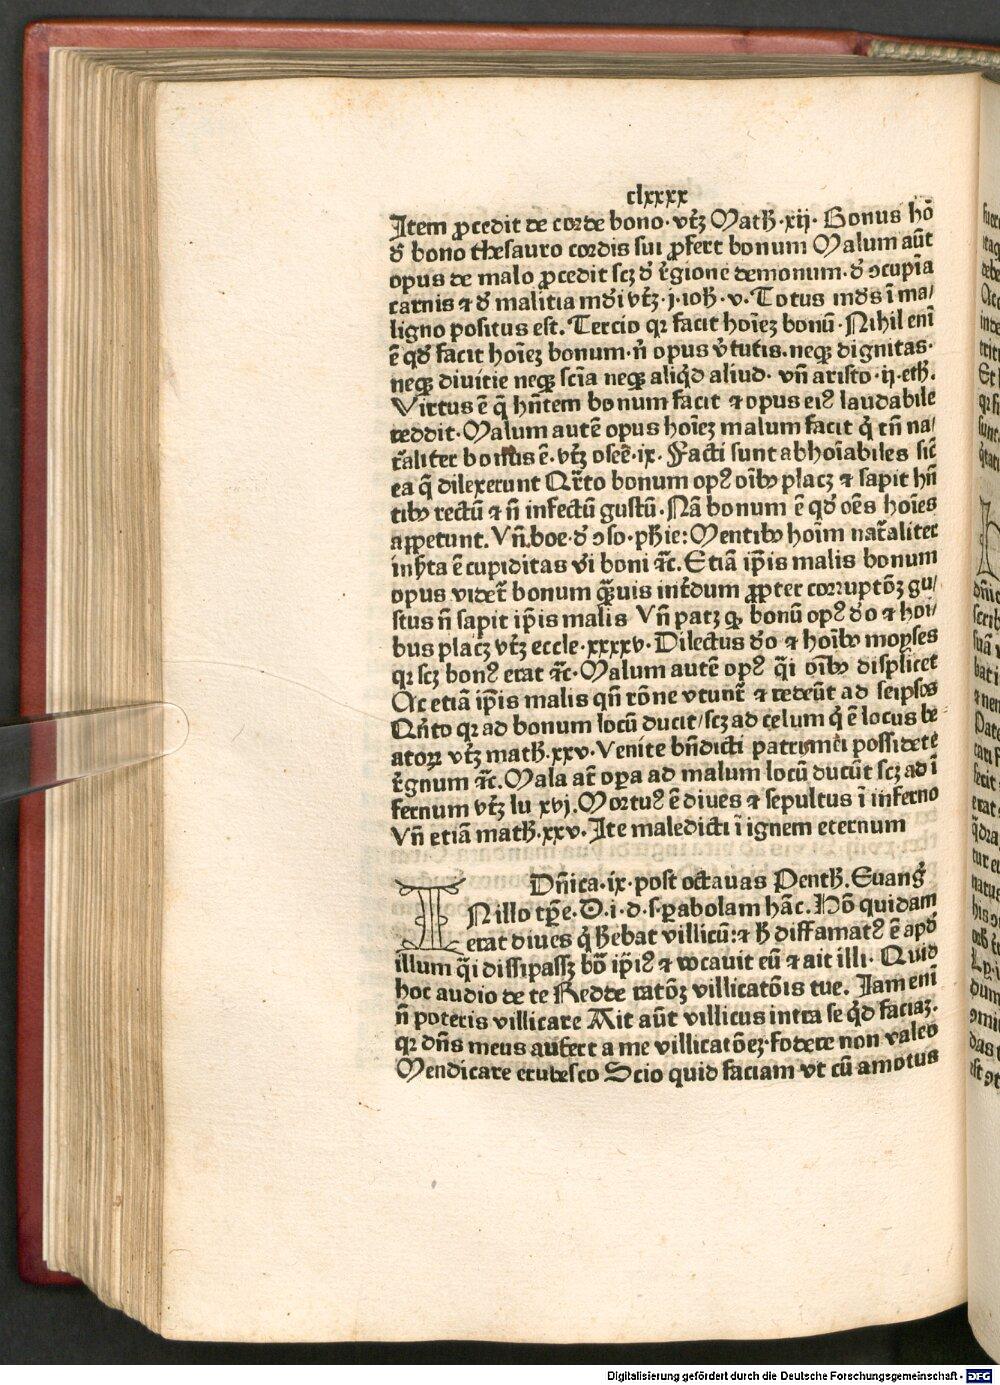 clxxxx
Item ꝓcedit de corde bono· vtꝫ Math̄ ·xij· Bonus hō
đ bono thesauro cordis sui ꝓfert bonum Malum aūt
opus de malo ꝓcedit scꝫ đ r̄gione demonum· đ ꝯcupīa
carnis ⁊ đ malitia mđi vtꝫ· j· ioh̄ ·v· Totus mđs ī ma/
ligno positus est. Tercio qꝛ facit hoīeꝫ bonū· Nihil enī
ē qđ facit hoīeꝫ bonum· n̄ opus v̄tutis. neqꝫ dignitas·
neqꝫ diuitie neqꝫ scīa neqꝫ aliqđ aliud· vn̄ aristo ·ij· eth̄.
Virtus ē q̄ hn̄tem bonum facit ⁊ opus eiꝰ laudabile
reddit· Malum autē opus hoīeꝫ malum facit q̄ tn̄ na/
tᷓaliter bonus ē· vtꝫ oseē ·ix· Facti sunt abhoīabiles sic̄
ea q̄ dilexerunt Qr̄to bonum opꝰ oībꝰ placꝫ ⁊ sapit hn̄
tibꝰ rectū ⁊ n̄ infectū gustū· Nā bonum ē qđ oēs hoīes
appetunt. Vn̄ boe· đ ꝯso· ph̄ie: Mentibꝰ hoīm natᷓaliter
insta ē cupiditas v̄i boni ⁊c̄. Etiā ip̄is malis bonum
opus videt̄ bonum qᷓꝫuis int̄dum ꝓpter corruptōꝫ gu/
stus n̄ sapit ip̄is malis Vn̄ patꝫ qꝫ bonū opꝰ đo ⁊ hoī/
bus placꝫ vtꝫ eccle ·xxxxv· Dilectus đo ⁊ hoībꝰ moyses
qꝛ scꝫ bonꝰ erat ⁊c̄· Malum autē opꝰ q̄i oībꝰ displicet
Ac etiā ip̄is malis qn̄ rōne vtunt̄ ⁊ redeūt ad seipsos
Qn̄to qꝛ ad bonum locū ducit/ scꝫ ad celum q̄ ē locus be
atoꝝ vtꝫ math̄ ·xxv· Venite bn̄dicti patris mei possidete
r̄gnum ⁊c̄. Mala at̄ oꝑa ad malum locū ducūt scꝫ ad ī
fernum vtꝫ lu xvj. Mortuꝰ ē diues ⁊ sepultus ī inferno
Vn̄ etiā math̄ ·xxv· Ite maledicti ī ignem eternum
Dn̄ica· ix· post octauas Penth̄. Euanḡ
IN illo tꝑe. D· i· d· s· ꝑabolam hāc. Hō quidam
erat diues q̄ h̄ebat villicū: ⁊ h̄ diffamatꝰ ē apđ
illum q̄i dissipassꝫ bō ip̄iꝰ ⁊ vocauit eū ⁊ ait illi· Quid
hoc audio de te Redde ratōꝫ villicatōis tue. Iam enī
n̄ poteris villicare Ait aūt villicus intra se qđ faciaꝫ·
qꝛ dn̄s meus aufert a me villicatōeꝫ· fodere non valeo
Mendicare erubesco Scio quid faciam vt cū amotus
Digitalisierung gefördert durch die Deutsche Forschungsgemeinschaft - DFG